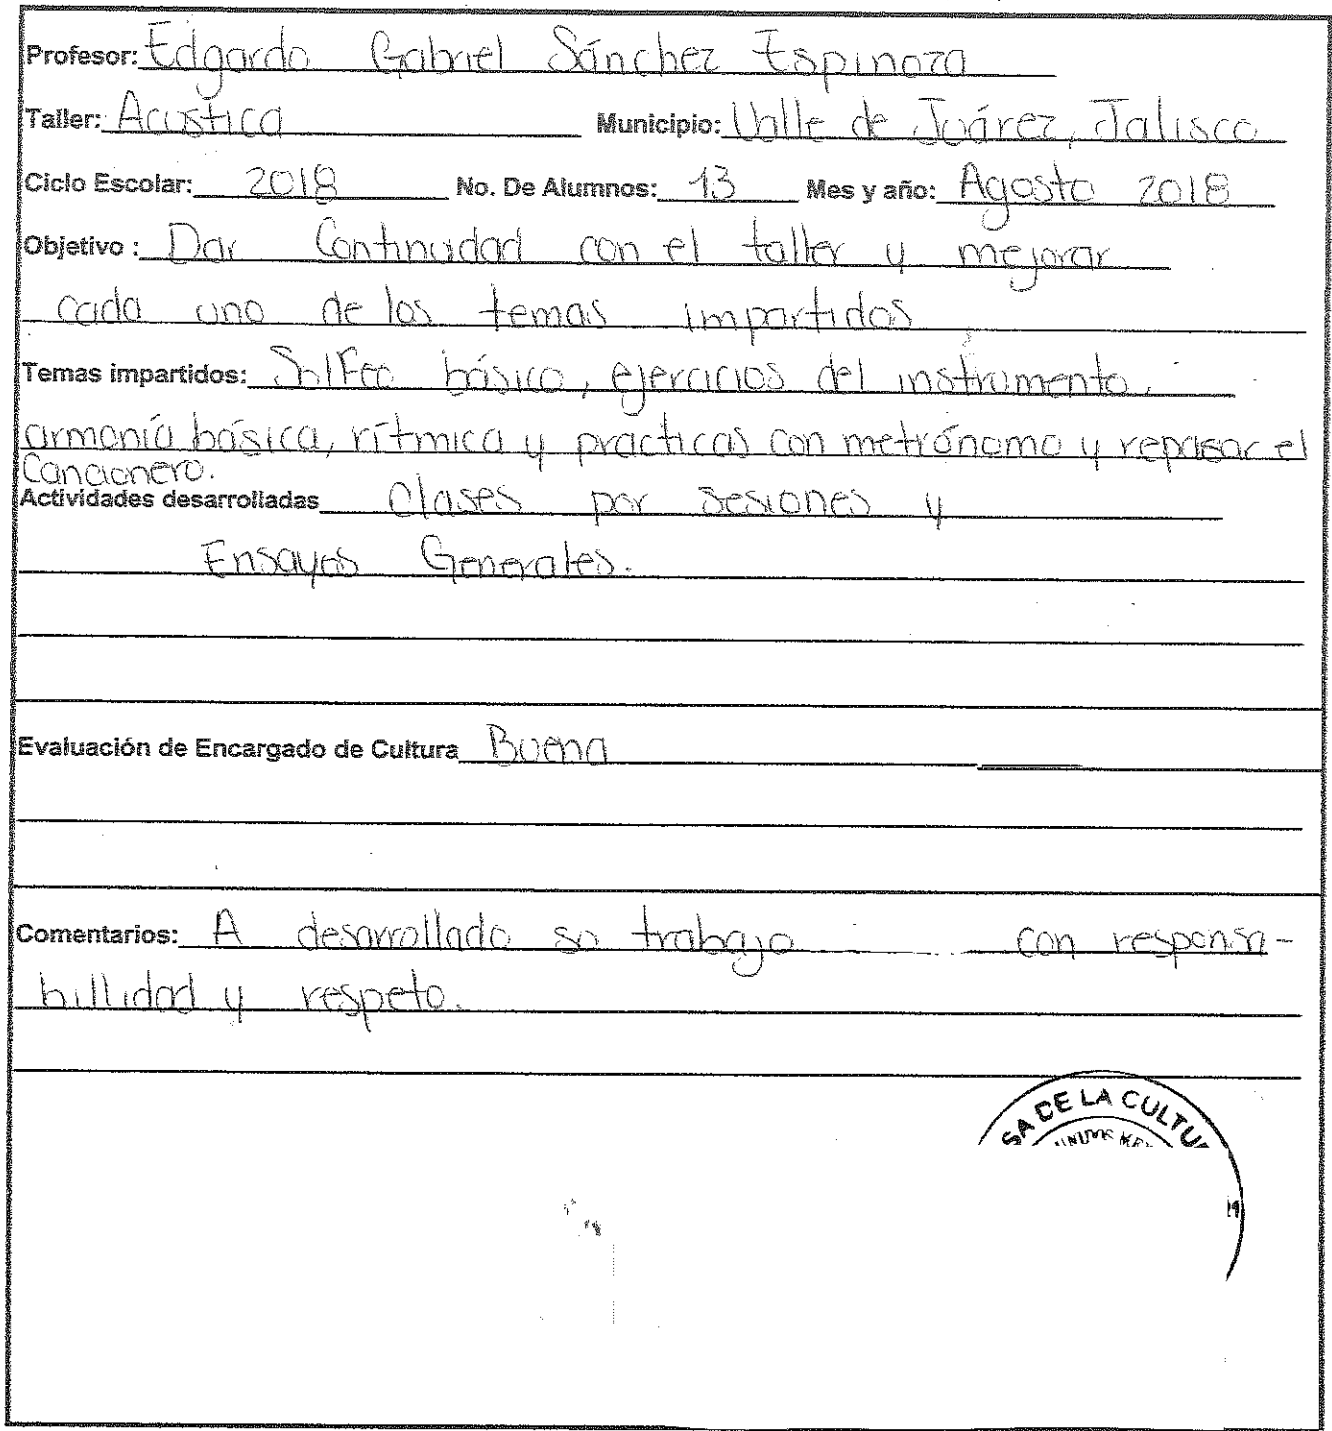 Profesor: Edgardo Gabriel Sánchez Espinoza
Taller: Acustica Municipio: Valle de Juárez, Jalisco
Ciclo Escolar: 2018 No. De Alumnos: 13 Mes y año: Agosto 2018
Objetivo : Dar Continuidad con el taller y mejorar
cada uno de los temas impartidos
Temas impartidos: Solfeo básico, ejercicios del instrumento,
armonía básica, rítmica y practicas con metrónomo y repasar el
Cancionero.
Actividades desarrolladas Clases por sesiones y
Ensayos Generales.
Evaluación de Encargado de Cultura Buena
Comentarios: A desarrollado su trabajo con responsa-
billidad y respeto.
SA DE LA CULTU
UNIDOS